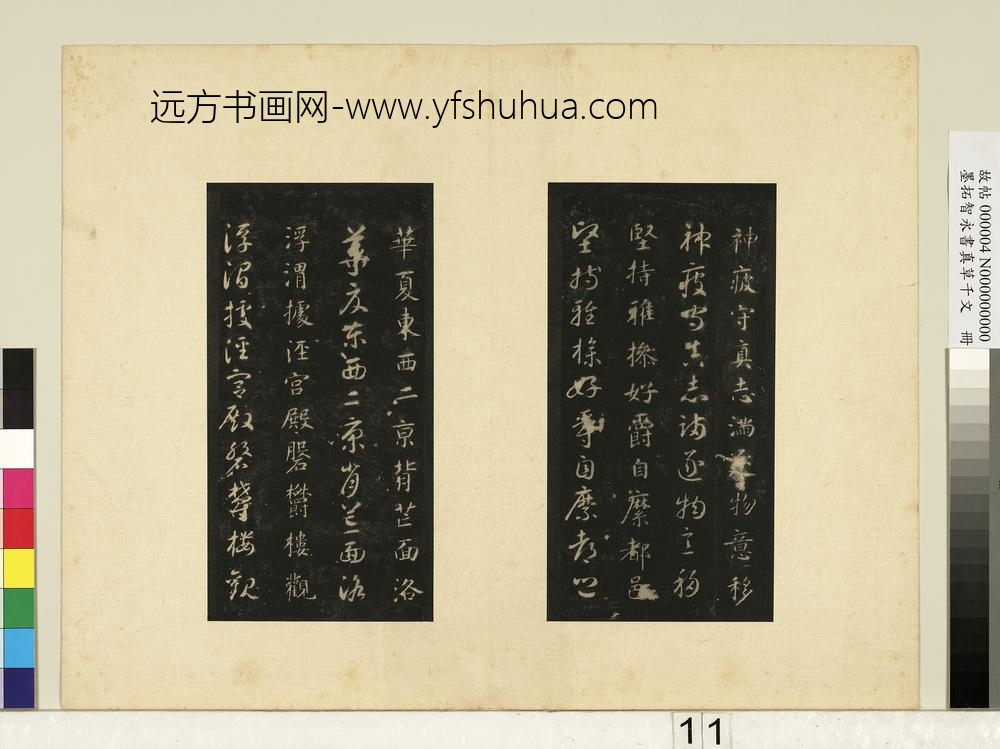 远方书画网-www.yfshuhua.com
神疲守真志滿逐物意移
神疲守真志滿逐物意移
堅持雅操好爵自縻都邑
堅持雅操好爵自縻都邑
華夏東西二京背芒面洛
華夏東西二京背芒面洛
浮渭據涇宮殿磐欝樓觀
浮渭據涇宮殿磐欝樓觀
故帖 000004 N000000000
墨拓智永書真草千文 冊
11